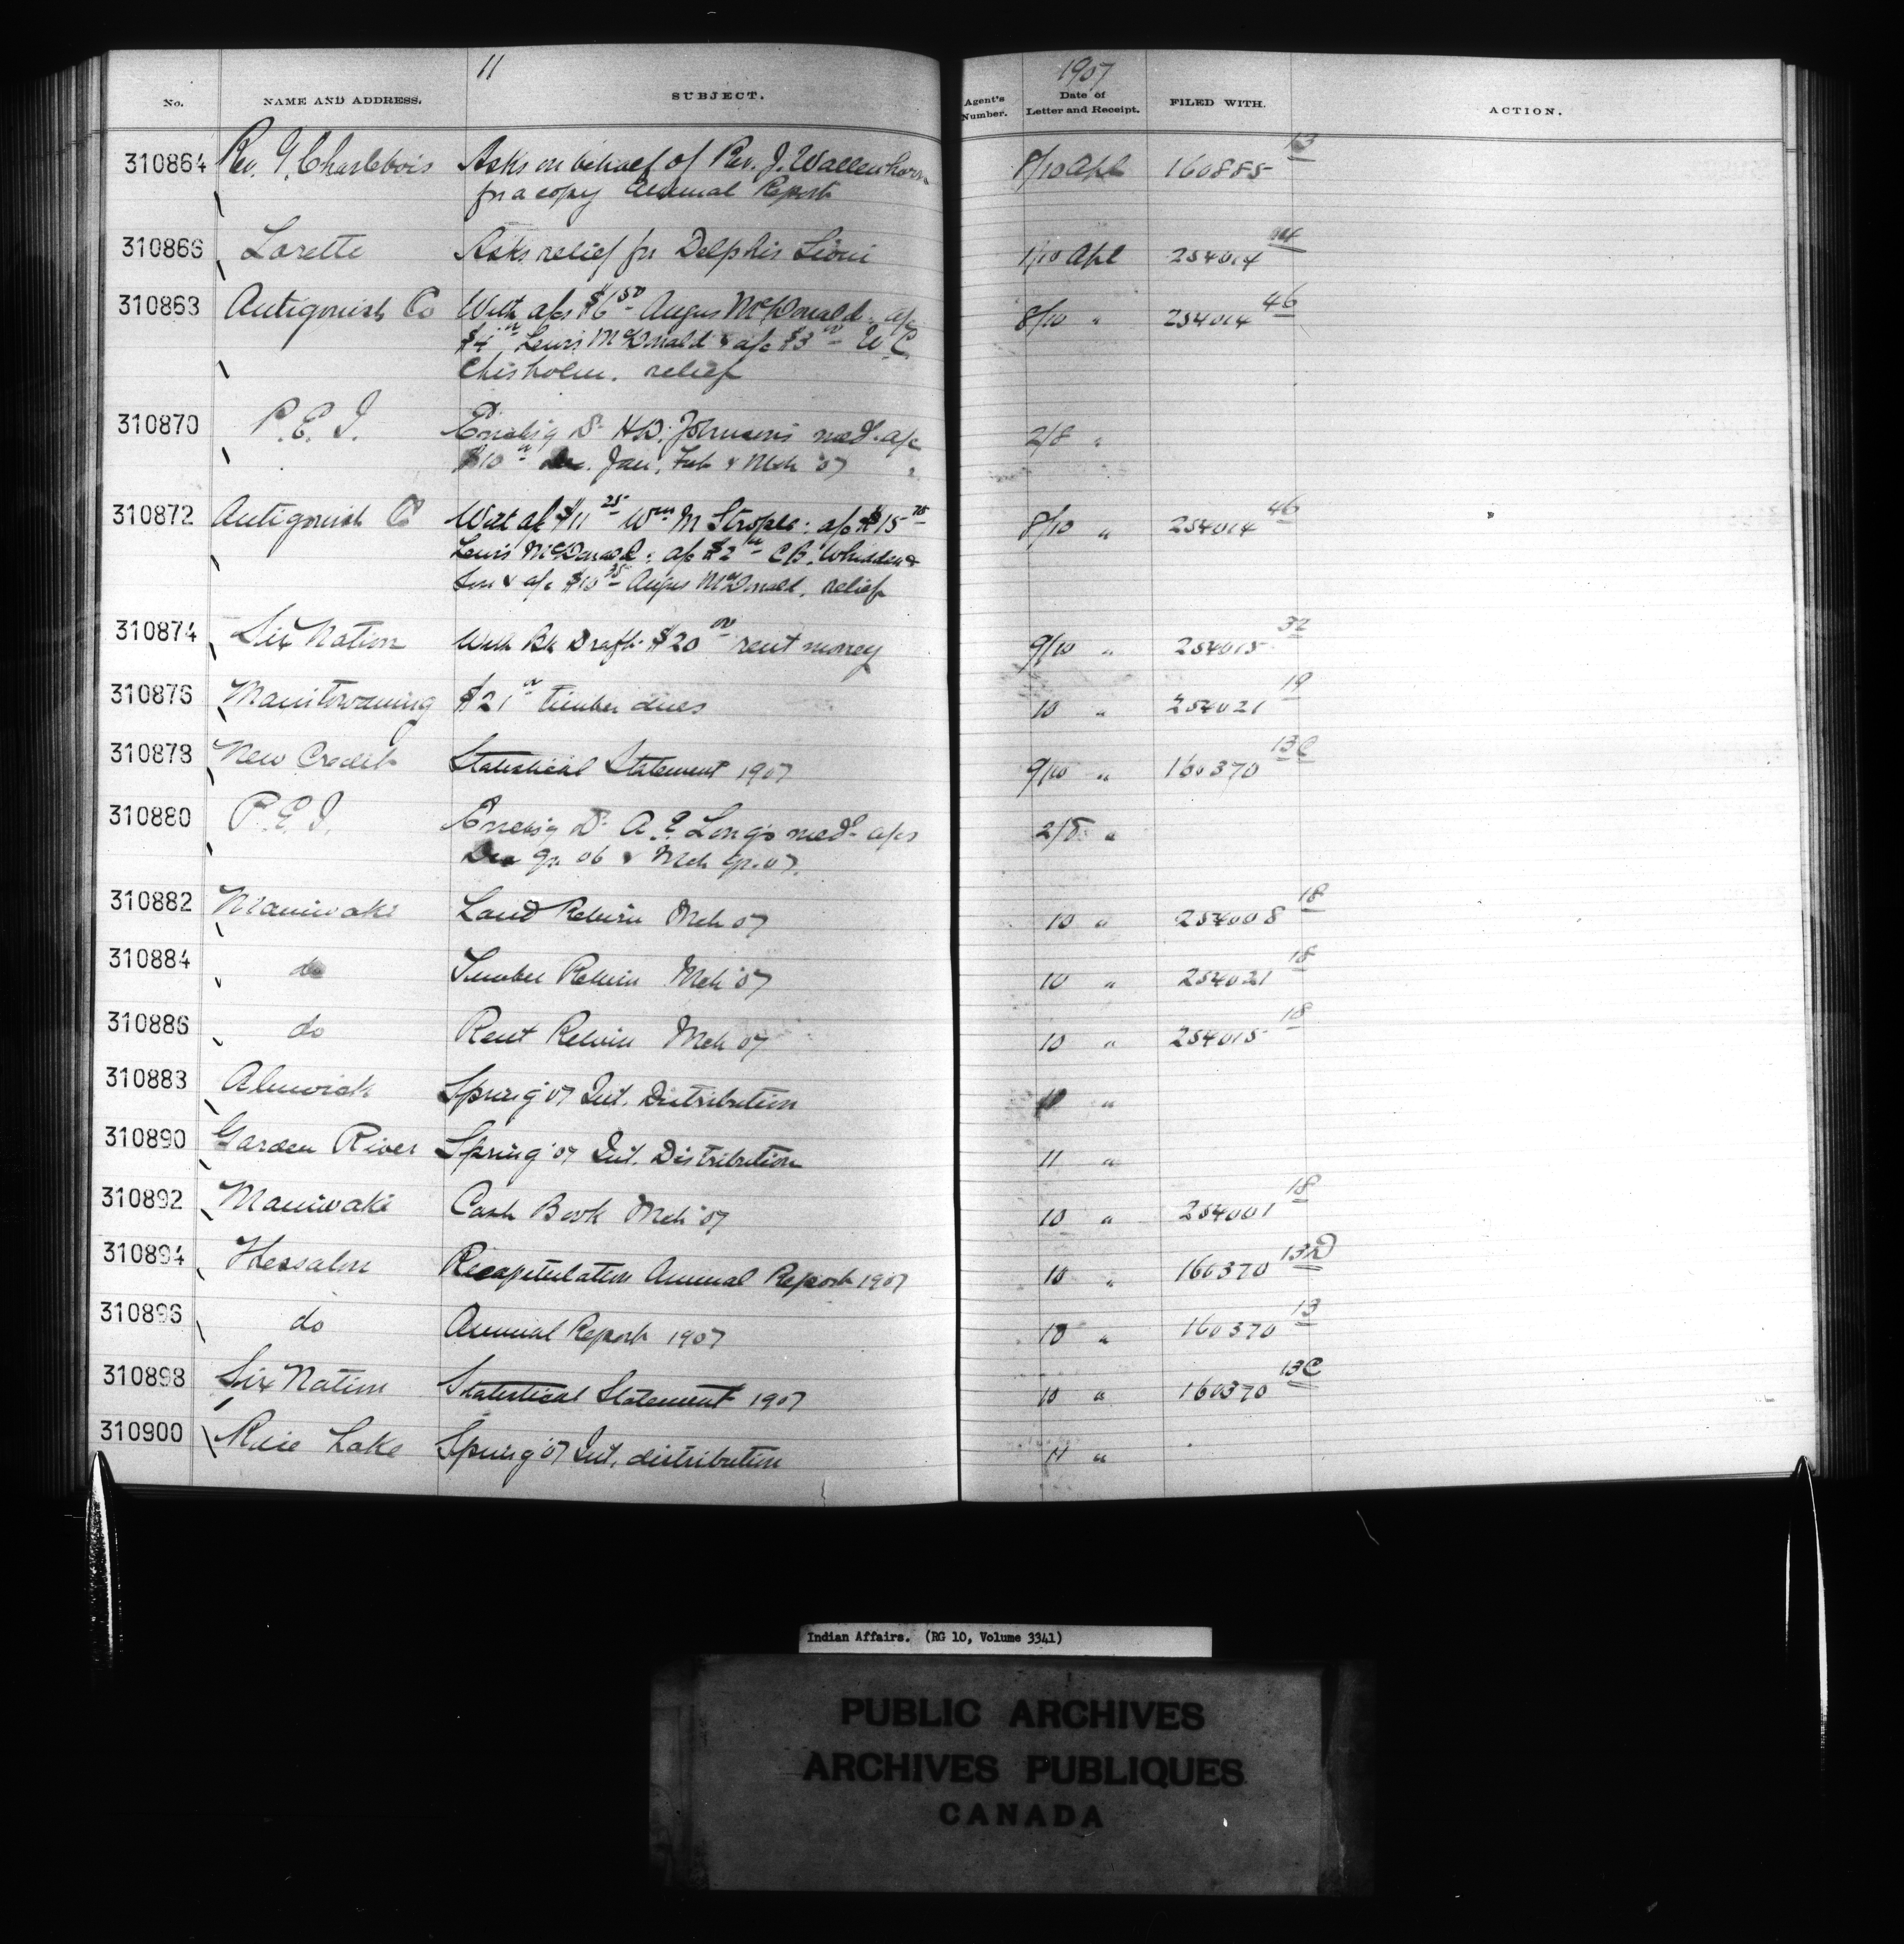 11
1907
No. NAME AND ADDRESS. SUBJECT. Agent's Number. Date of Letter and Receipt. FILED WITH. ACTION.
310864 Rev. G. Charlebois Asks on behalf of Rev. J. 8/10 Apl 160885 13
for a copy Annual Report
310866 Lorette Asks relief for Delphis Sioui 1/10 Apl 254014
310868 Antigonish Co With a/cs $6 50 Angus McDonald: a/c 8/10 " 254014 46
$4 00 Lewis McDonald & a/c $3 00 W.C.
Chisholm. relief
310870 P.E.I. Dr H.D. Johnson's med. a/c 2/8 "
$10 00 Jan, Feb & Mch '07
310872 Antigonish Co With a/c $11 25 Wm M Strople: a/c $15 75 8/10 " 254014 46
Lewis McDonald: a/c $2 C.B. Whidden &
Son & a/c $10 35 Angus McDonald. relief
310874 Six Nation With Bk Draft $20 00 rent money 9/10 " 254015 32
310876 Manitowaning $21 00 timber dues 10 " 254021 19
310878 New Credit Statistical Statement 1907 9/10 " 160370 13C
310880 P.E.I. Dr A.E. Long's med. a/cs 2/8 "
Dec qr 06 & Mch qr. 07.
310882 Maniwaki Land Return Mch 07 10 " 254008 18
310884 do Timber Return Mch '07 10 " 254021 18
310886 do Rent Return Mch 07 10 " 254015 18
310888 Alnwick Spring '07 Int. Distribution 10 "
310890 Garden River Spring '07 Int. Distribution 11 "
310892 Maniwaki Cash Book Mch '07 10 " 254001 18
310894 Thessalon Recapitulation Annual Report 1907 10 " 160370 13D
310896 do Annual Report 1907 10 " 160370 13
310898 Six Nation Statistical Statement 1907 10 " 160370 13C
310900 Rice Lake Spring '07 Int. distribution 11 "
Indian Affairs. (RG 10, Volume 3341)
PUBLIC ARCHIVES
ARCHIVES PUBLIQUES
CANADA